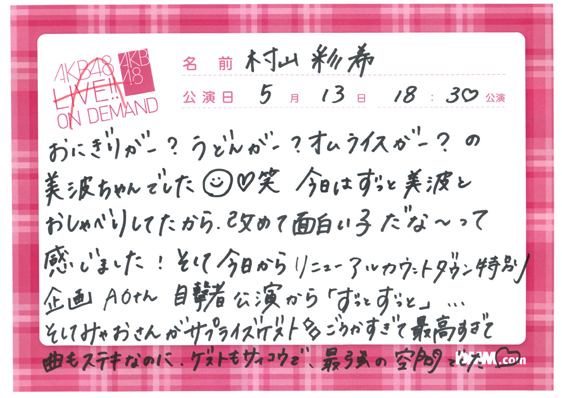 AKB48
LIVE!!
ON DEMAND
AKB
48
名前 村山彩希
公演日 5月13日 18:30♡公演
おにぎりがー？うどんがー？オムライスがー？の
美波ちゃんでした☺♡笑 今日はずっと美波と
おしゃべりしてたから、改めて面白い子だな〜って
感じました！そして今日からリニューアルカウントダウン特別
企画 AOさん 目撃者公演から「ずっとずっと」...
そしてみゃおさんがサプライズゲスト 豪ごうかすぎて最高すぎて
曲もステキなのに、ゲストもサイコウで、最強の空間でした♡
.com